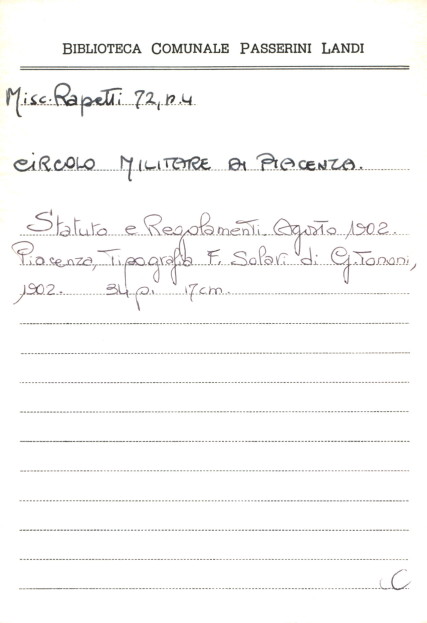 BIBLIOTECA COMUNALE PASSERINI LANDI
Misc. Rapetti 72, n.4
CIRCOLO MILITARE DI PIACENZA.
Statuto e Regolamenti. Agosto 1902.
Piacenza, Tipografia F. Solari di G. Tononi,
1902. 34 p. 17 cm.
C